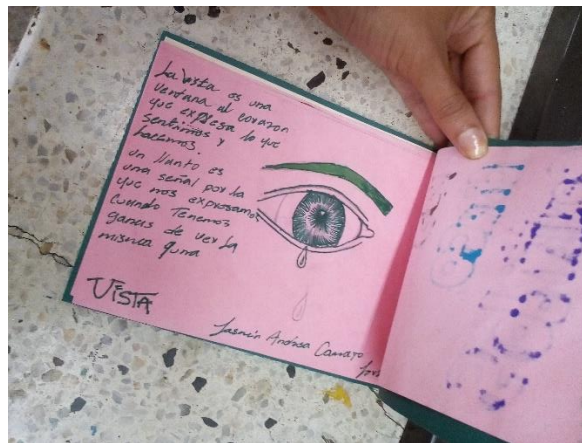 La vista es una
ventana al corazon
que expresa lo que
sentimos y
hacemos.
un llanto es
una señal por la
que nos expresamos
cuando Tenemos
ganas de ver la
misma
VISTA
Jasmin Andrea Camayo